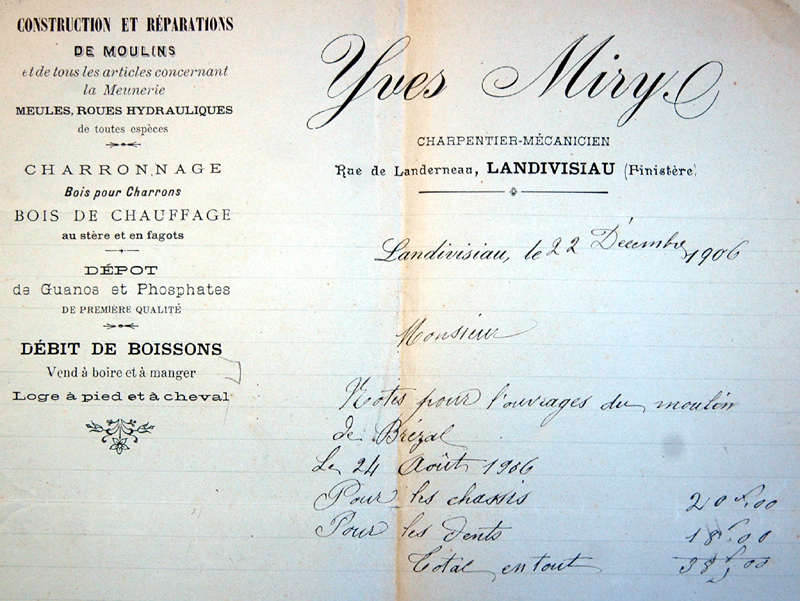 CONSTRUCTION ET RÉPARATIONS
DE MOULINS
et de tous les articles concernant
la Meunerie
MEULES, ROUES HYDRAULIQUES
de toutes espèces
CHARRONNAGE
Bois pour Charrons
BOIS DE CHAUFFAGE
au stère et en fagots
DÉPOT
de Guanos et Phosphates
DE PREMIÈRE QUALITÉ
DÉBIT DE BOISSONS
Vend à boire et à manger
Loge à pied et à cheval
Yves Miry
CHARPENTIER-MÉCANICIEN
Rue de Landerneau, LANDIVISIAU (Finistère)
Landivisiau, le 22 Décembre 1906
Monsieur
Notes pour l'ouvrages du moulin
de Brézal
Le 24 Août 1906
Pour les chassis 20f.00
Pour les dents 18f.00
Total en tout 38f.00